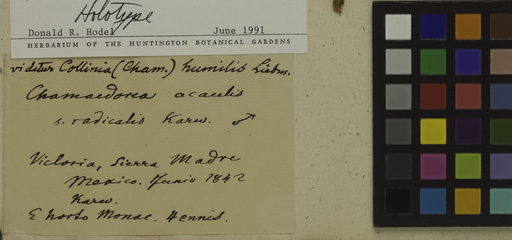 Holotype
Donald R. Hodel June 1991
HERBARIUM OF THE HUNTINGTON BOTANICAL GARDENS
videtur Collinia (Cham.) humilis Liebm.
Chamaedorea acaulis
s. radicalis Karw. ♂
Victoria, Sierra Madre
Mexico. Junio 1842
Karw.
E horto Monac. Hennis.